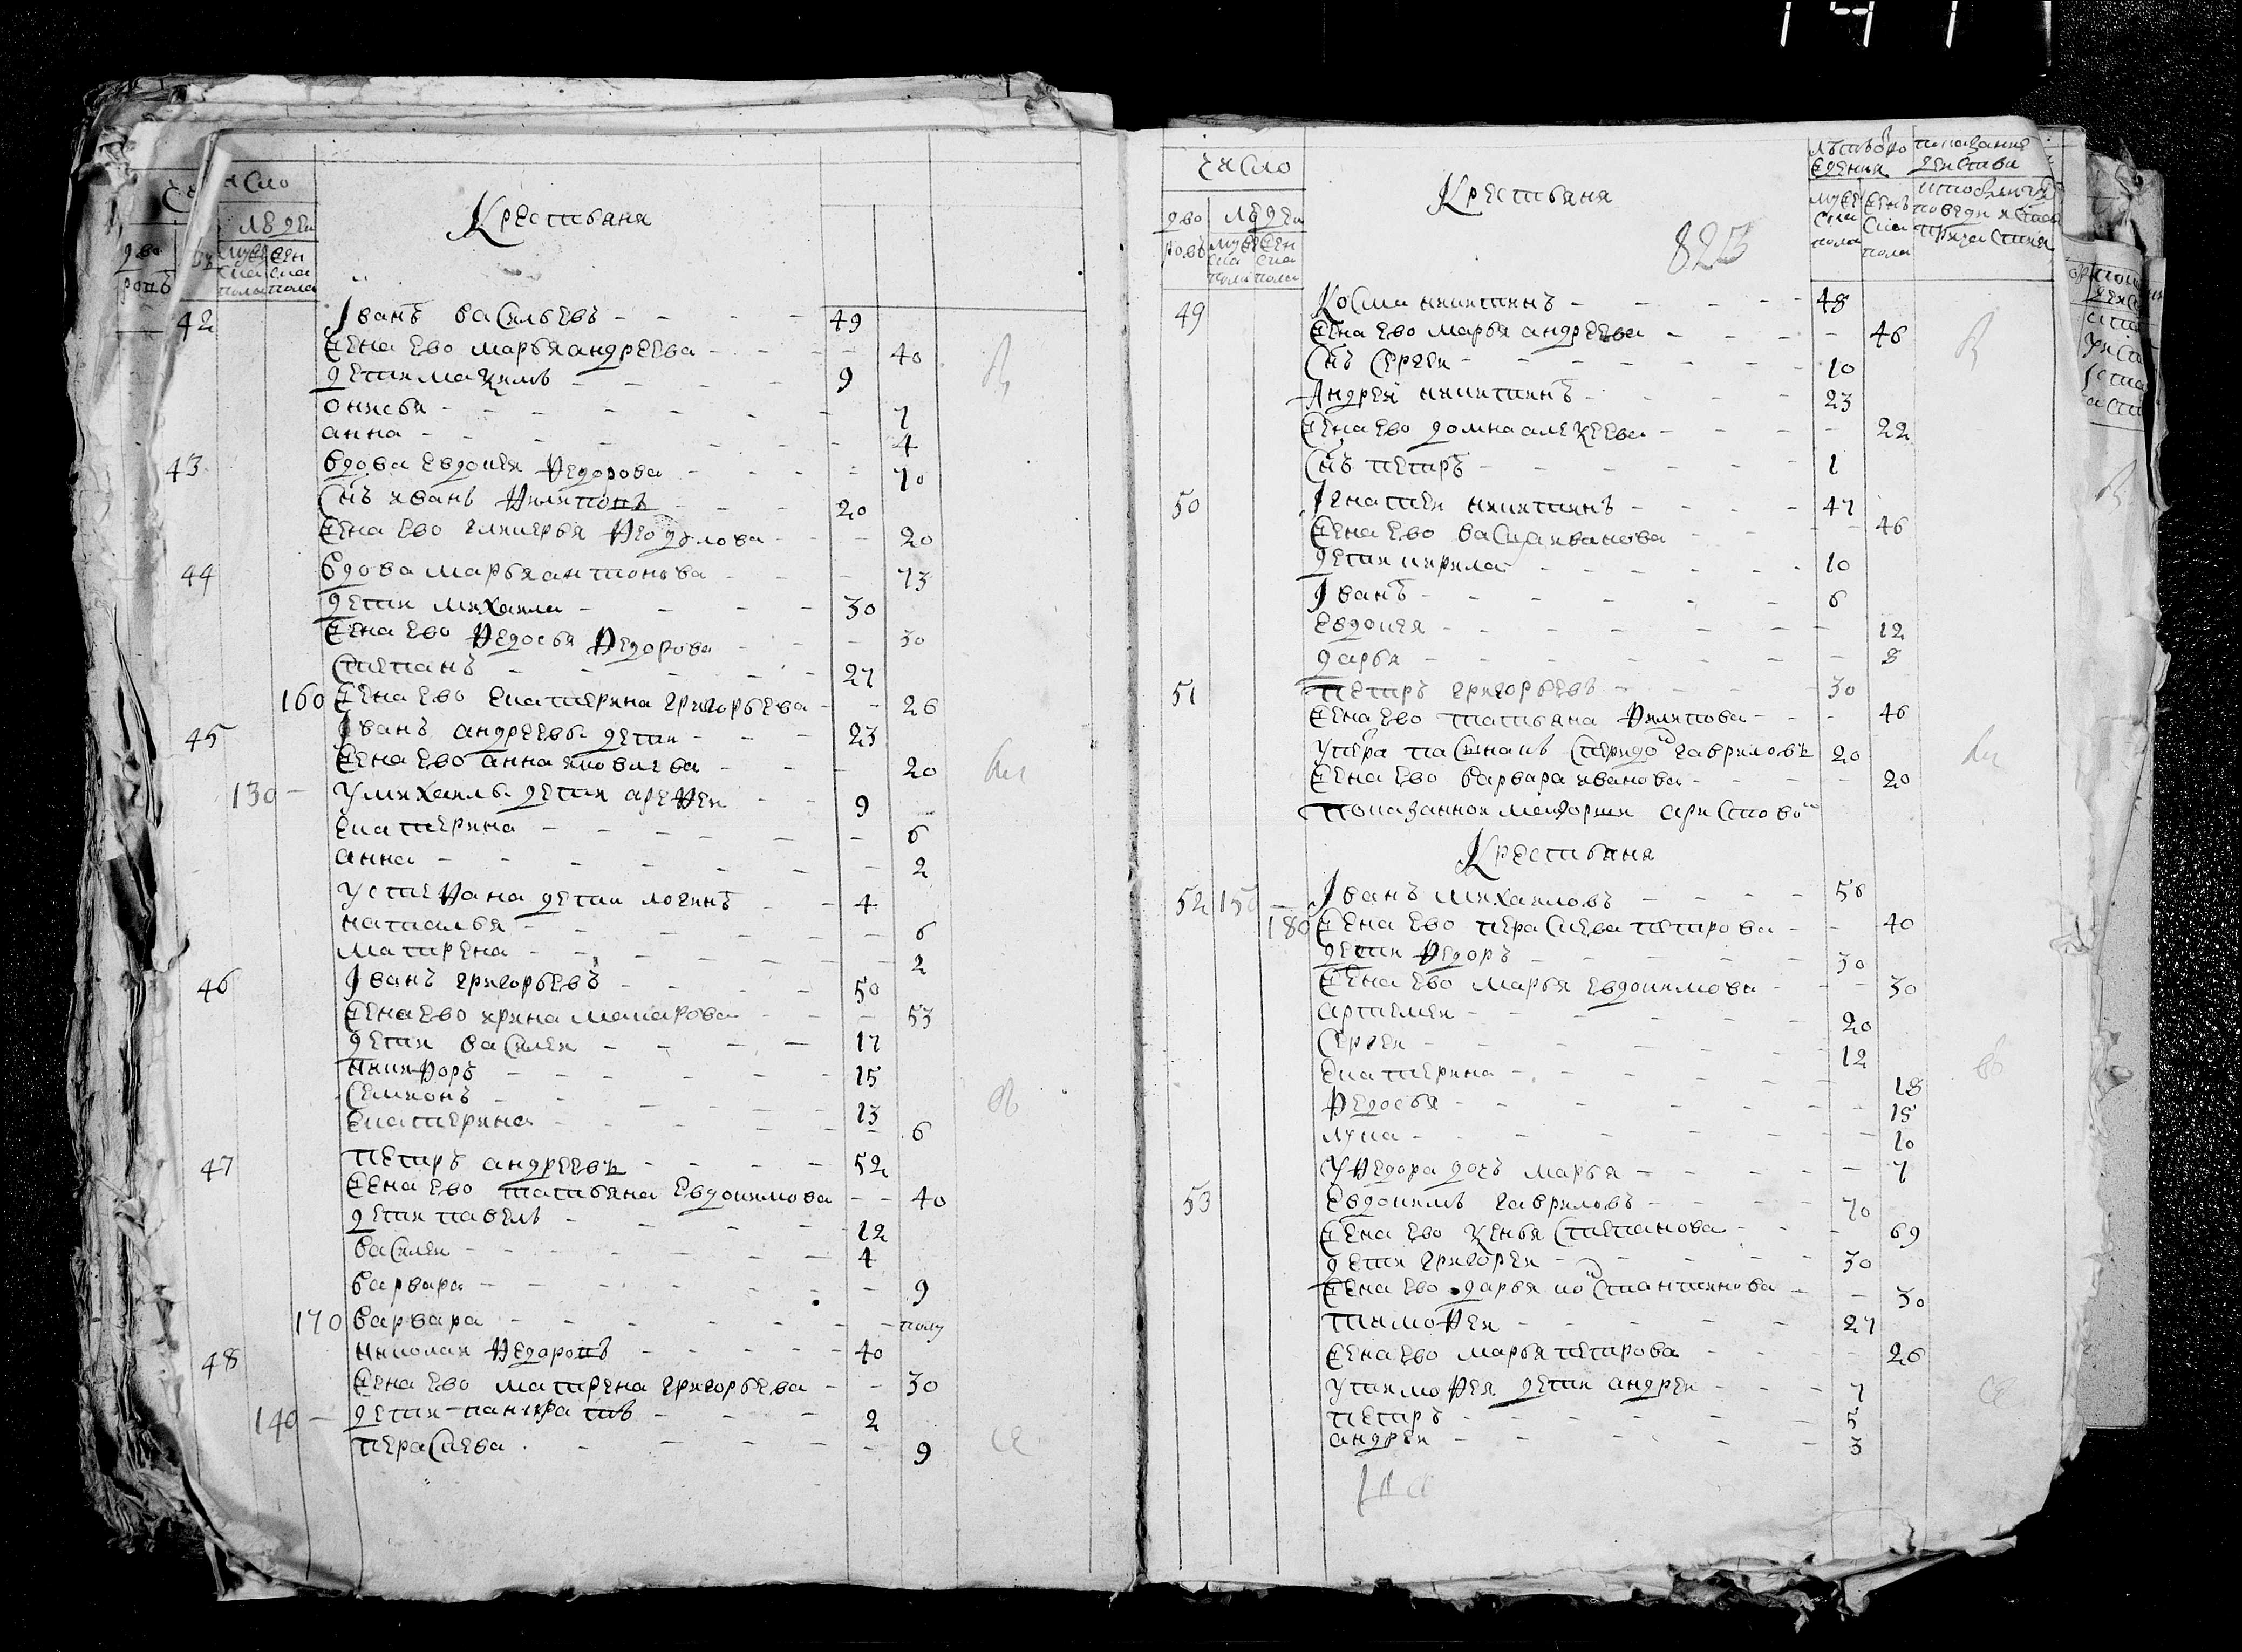 число
людеи
дво ровъ
мужеска пола
женска пола
Крестьяня
42 Іванъ васильевъ 49
Жена ево марья андреева 40
дети маѯимъ 9
онисья 7
анна 4
43 вдова евдокея Ѳедорова 70
Снъ иванъ Ѳилиповъ 20
Жена ево гликерья Ѳедулова 20
44 вдова марья антонова 73
дети михаила 30
Жена ево Ѳедосья Ѳедорова 30
Степанъ 27
160 Жена ево екатерина григорьева 26
45 Іванъ андреевы дети 23
Жена ево анна яковлева 20
130 У михаилы дети ареѲеи 9
екатерина 6
анна 2
У стеѲана дети логинъ 4
наталья 6
матрена 2
46 Іванъ григорьевъ 50
Жена ево ирина макарова 53
дети василеи 17
никиѲоръ 15
Семионъ 13
екатерина 6
47 петръ андреевъ 52
Жена ево татьяна евдокимова 40
дети павелъ 12
василеи 4
варвара 9
170 варвара полу
48 николаи Ѳедоровъ 40
Жена ево матрена григорьева 30
140 дети панкратъ 2
перасковья 9
число
дво ровъ
людеи
мужеска пола
женска пола
Крестьяня
лѣтъ
мужеска пола
женска пола
823
49 Косма никитинъ 48
Жена ево марья андреева 46
Снъ Сергеи 10
Андреи никитинъ 23
Жена ево домна алеѯеева 22
Снъ петръ 1
50 Ігнатеи никитинъ 47
Жена ево василиса иванова 46
дети кирила 10
Іванъ 6
Евдокея 12
дарья 8
51 петръ григорьевъ 30
Жена ево татьяна Ѳилипова 46
У петра пасынакъ Спиридо гавриловъ 20
Жена ево варвара иванова 20
Крестьяня
52 150 Іванъ михаиловъ 56
180 Жена ево перасковья петрова 40
дети Ѳедоръ 30
Жена ево марья евдокимова 30
артемеи 20
Сергеи 12
екатерина 18
Ѳедосья 15
лукia 10
У Ѳедора дочь марья 7
53 Евдокимъ гавриловъ 70
Жена ево ѯенья Степанова 69
дети григореи 30
Жена ево дарья константинова 30
тимоѲеи 27
Жена ево марья петрова 26
У тимоѲея дети андреи 7
петръ 5
андреи 3